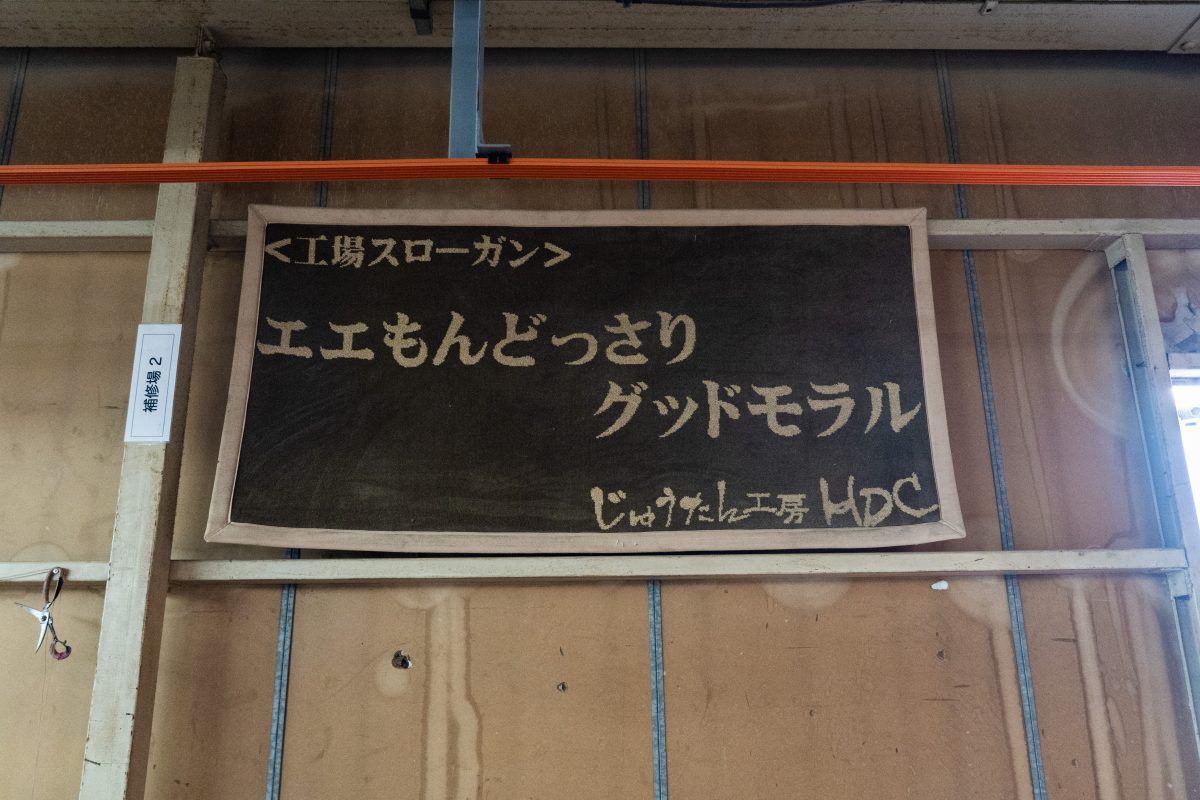 <工場スローガン>
エエもんどっさり
グッドモラル
じゅうたん工房 HDC
補修場 2